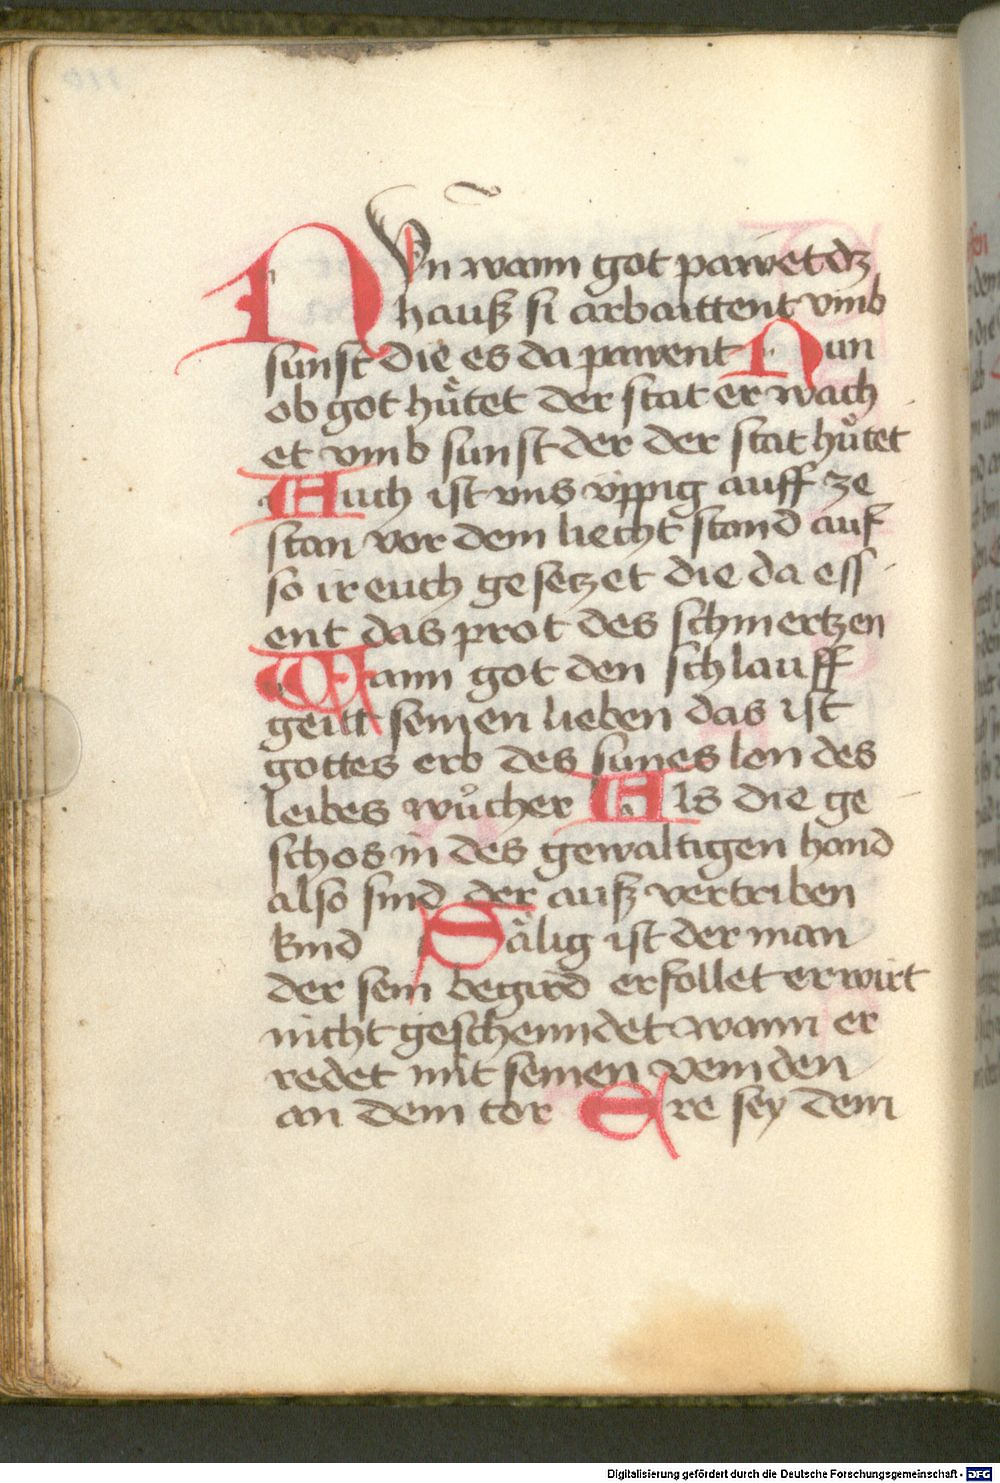 NVn wann got pawet dz
hauß si arbaittent vmb
sunst die es da pawent Nun
ob got hůtet der stat er wach
et vmb sunst der der stat hůtet
Auch ist vns üppig auff ze
stan vor dem liecht stand auf
so ir euch gesetzet die da ess
ent das prot des schmertzen
Wann got den schlauff
geitt seinen lieben das ist
gottes erb des sunes lon des
leibes wůcher Als die ge
schos in des gewaltigen hand
also sind der auß vertriben
kind Sälig ist der man
der sein begird erfollet er wirt
nicht geschenndet wann er
redet mit seinen veinden
an dem tor Ere sey dem
Digitalisierung gefördert durch die Deutsche Forschungsgemeinschaft - DFG